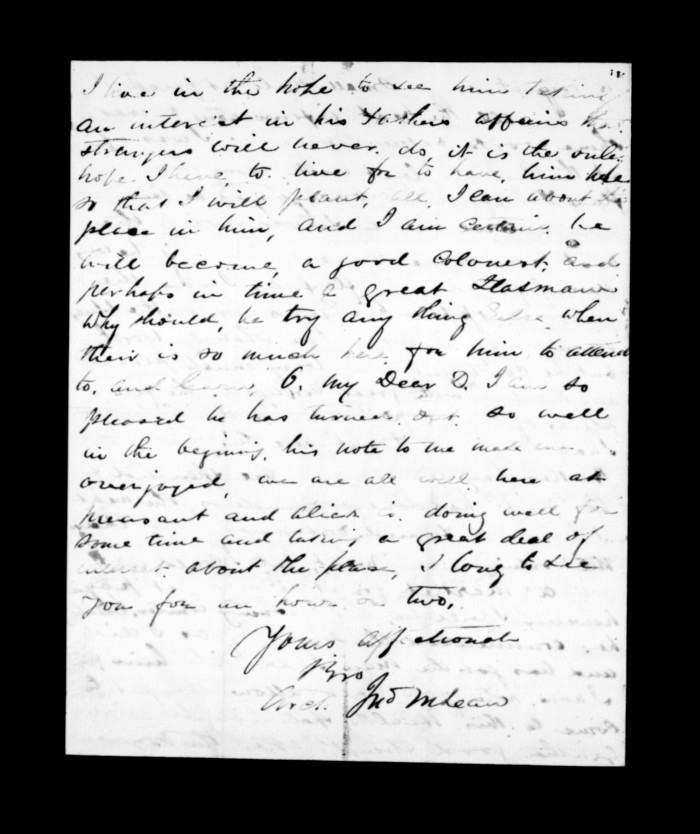 I live in the hope to see him taking
an interest in his Fathers affairs that
strangers will never do it is the only
hope I have to live for to have him here
so that I will plant, all I can about the
place in him, and I am certain, he
will become, a good Colonest, and
perhaps in time a great
Why should, he try any thing Else when
their is so much here for him to attend
to, and learn, O, my Dear D. I am so
pleased he has turned out so well
in the begining, his note to me made me
overjoyed, we are all well here at
preasant and Alick is doing well for
some time and taking a great deal of
interest about the place, I long to see
you for an hour or two,
Yours affectionate
Bro
Arch. Jno McLean